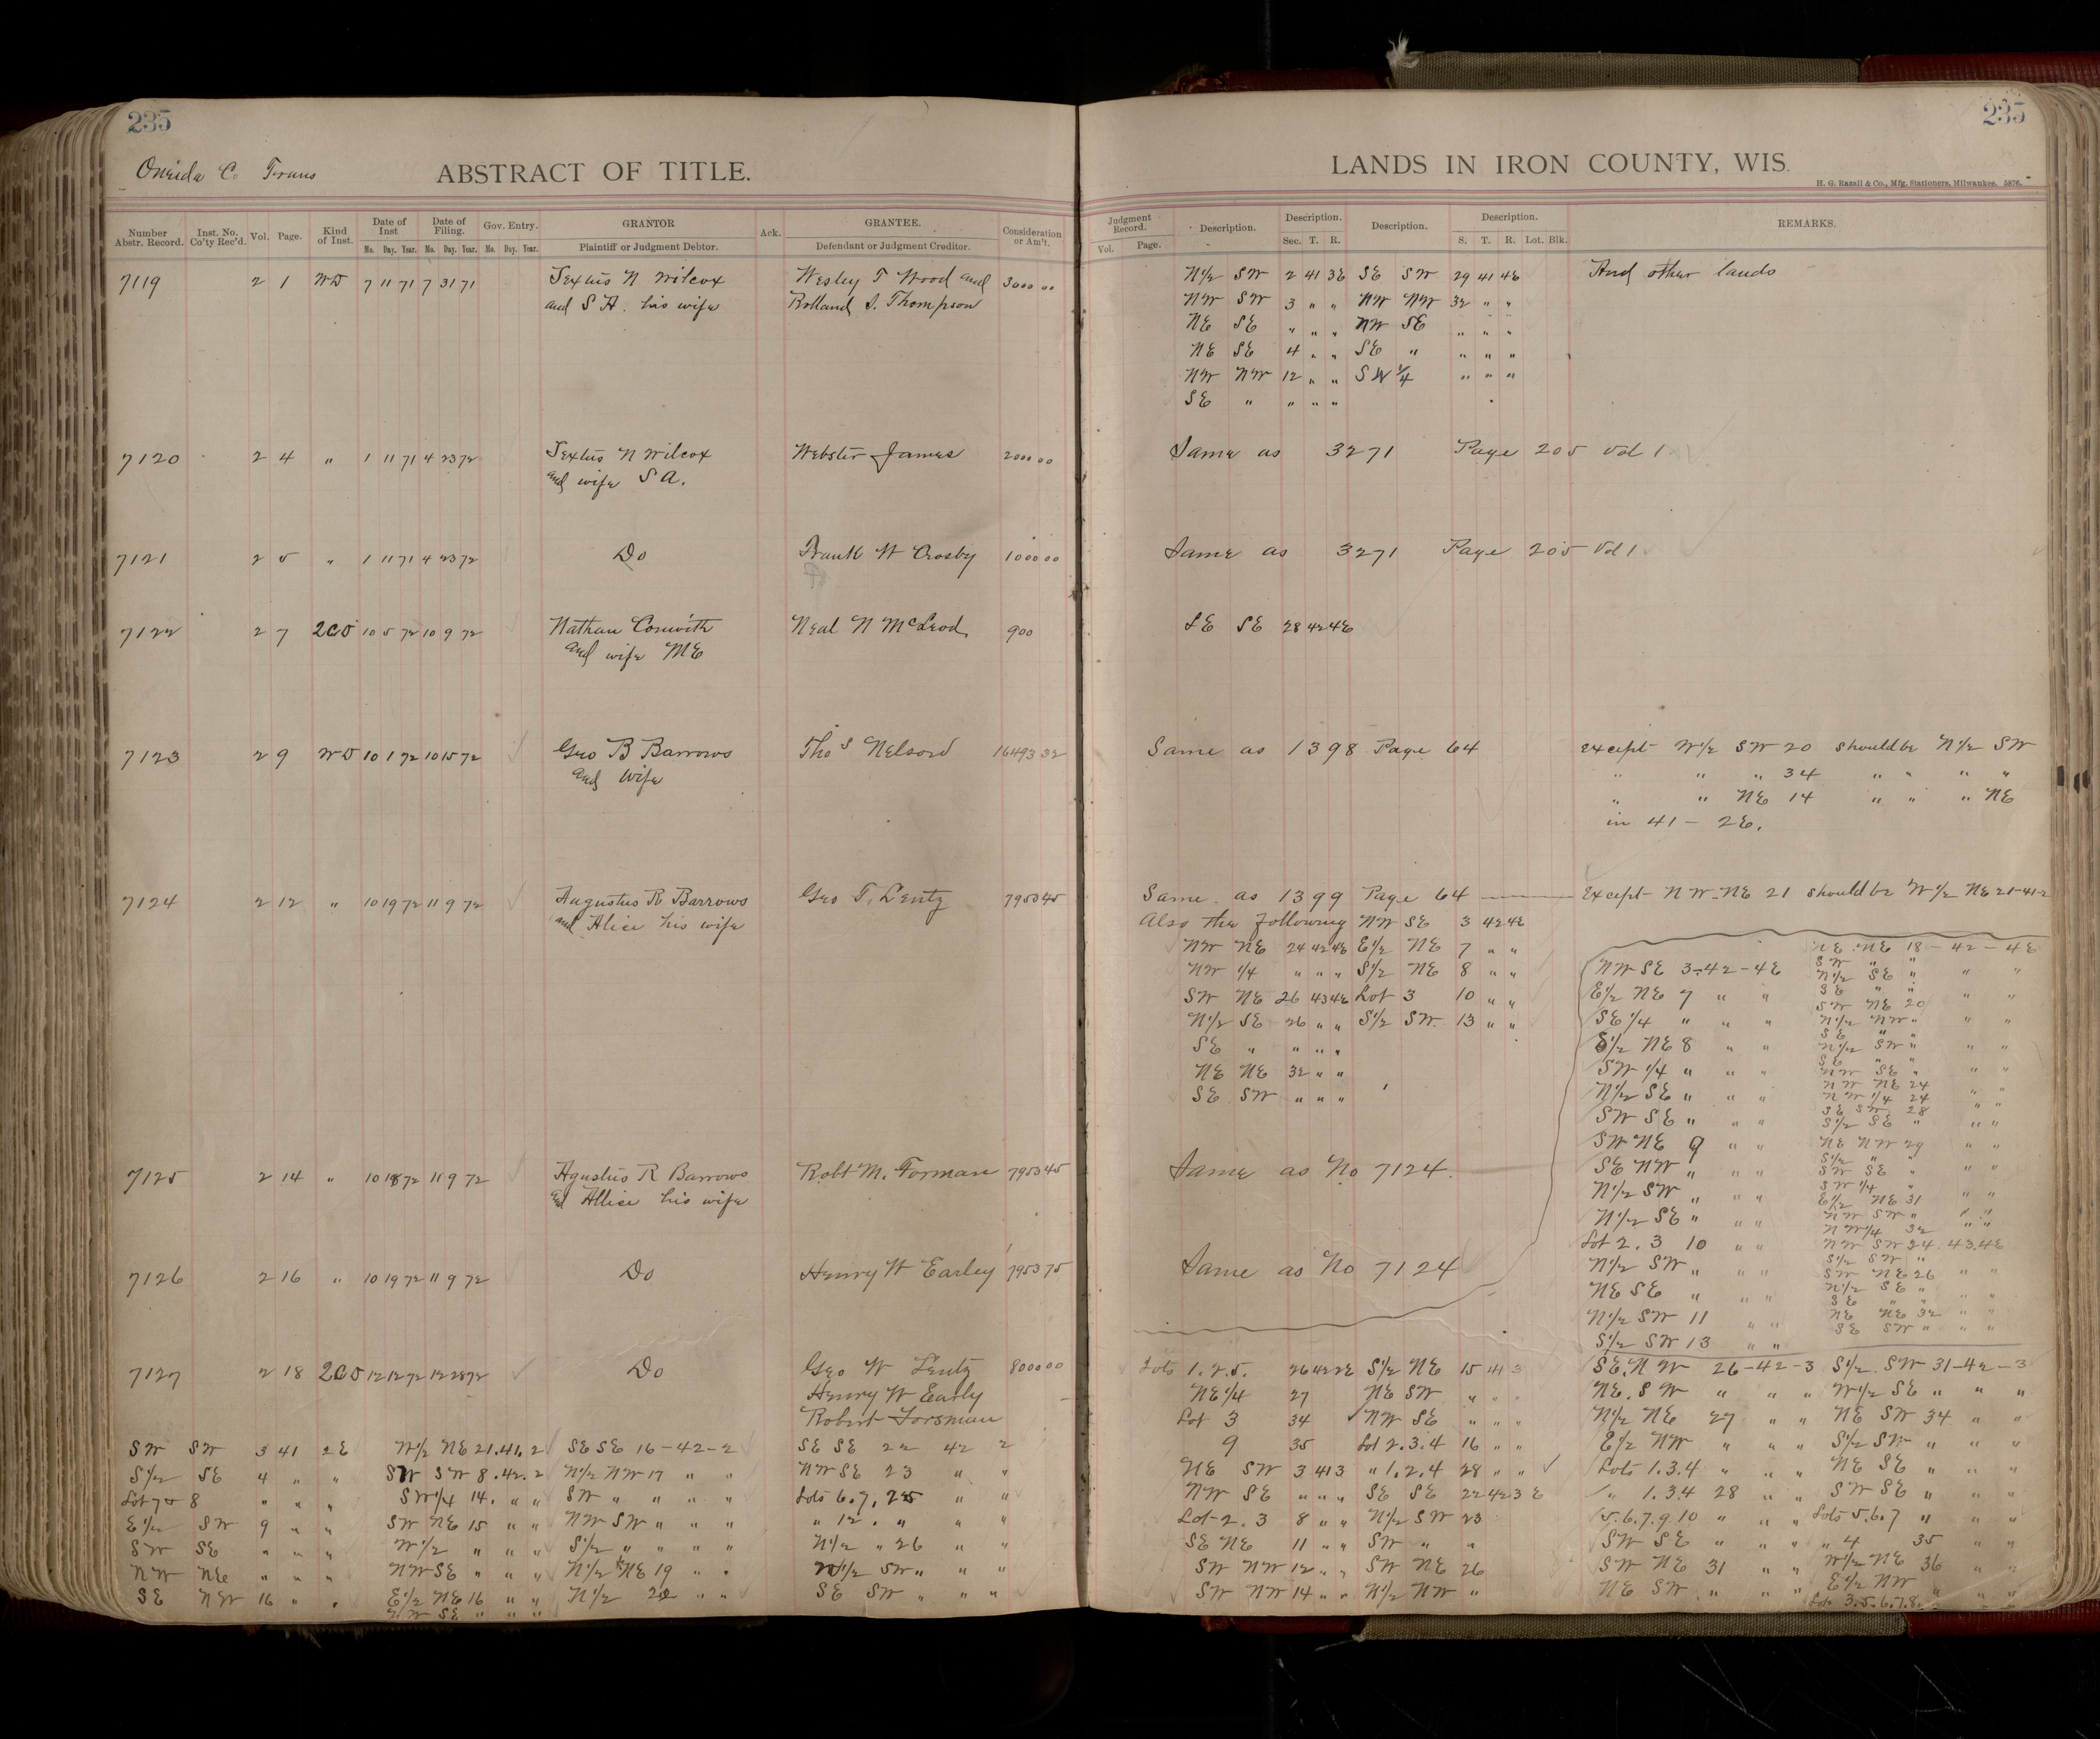 235
235
Oneida Co Trans
ABSTRACT OF TITLE.
LANDS IN IRON COUNTY, WIS.
H. G. Razall & Co., Mfg. Stationers, Milwaukee. 5876.
Number Abstr. Record. Inst. No. Co'ty Rec'd. Vol. Page. Kind of Inst. Date of Inst Mo. Day. Year. Date of Filing. Mo. Day. Year. Gov. Entry. Mo. Day. Year. GRANTOR Plaintiff or Judgment Debtor. Ack. GRANTEE. Defendant or Judgment Creditor. Consideration or Am't.
Judgment Record. Vol. Page. Description. Description. Sec. T. R. Description. Description. S. T. R. Lot. Blk. REMARKS.
7119 2 1 WD 7 11 71 7 31 71 Sextus N Wilcox Wesley T Wood and 3000 00
and S A. his wife Rolland S. Thompson
N1/2 SW 2 41 3E SE SW 29 41 4E And other lands
NW SW 3 " " NW NW 32 " "
NE SE " " " NW SE " " "
NE SE 4 " " SE " " " "
NW NW 12 " " SW 1/4 " " "
SE " " " "
7120 2 4 " 1 11 71 4 23 72 Sextus N Wilcox Webster James 2000 00
and wife S A.
Same as 3271 Page 205 Vol 1
7121 2 5 " 1 11 71 4 23 72 Do Frank W Crosby 1000 00
Same as 3271 Page 205 Vol 1
7122 2 7 2CD 10 5 72 10 9 72 Nathan Corwith Neal N McLeod 900
and wife ME
SE SE 28 42 4E
7123 2 9 WD 10 1 72 10 15 72 Geo B Barrows Thos Nelson 16493 32
and wife
Same as 1398 Page 64 except W1/2 SW 20 should be N1/2 SW
" " " 34 " " " "
" " NE 14 " " " NE
in 41 - 2E.
7124 2 12 " 10 19 72 11 9 72 Augustus R Barrows Geo T. Lentz 7953 45
and Alice his wife
Same as 1399 Page 64 Except NW-NE 21 should be W1/2 NE 21-41-2
Also the following NW SE 3 42 4E
NW NE 24 42 4E E1/2 NE 7 " "
NW 1/4 " " " S1/2 NE 8 " "
SW NE 26 43 4E Lot 3 10 " "
N1/2 SE 26 " " S1/2 SW 13 " "
SE " " " "
NE NE 32 " "
SE SW " " "
NW SE 3-42-4E
E1/2 NE 7 " "
SE 1/4 " " "
S1/2 NE 8 " "
SW 1/4 " " "
N1/2 SE " " "
SW SE " " "
SW NE 9 " "
SE NW " " "
N1/2 SW " " "
N1/2 SE " " "
Lot 2. 3 10 " "
N1/2 SW " " "
NE SE " " "
N1/2 SW 11 " "
S1/2 SW 13 " "
NE NE 18 - 42 - 4E
SW " "
N1/2 SE " " "
SE " "
SW NE 20 " "
N1/2 NW " " "
SE " "
N1/2 SW " " "
SE " "
NW SE " " "
NW NE 24 " "
NW 1/4 24
SE SW 28 " "
S1/2 SE " " "
NE NW 29 " "
S1/2 " "
SW SE " " "
SW 1/4 "
E1/2 NE 31 " "
NW SW " " "
NW1/4 32 " "
NW SW 24. 43. 4E
S1/2 SW "
SW NE 26 " "
N1/2 SE "
SE " " " "
NE NE 32 " "
SE SW " " "
7125 2 14 " 10 18 72 11 9 72 Agustus R Barrows Robt M. Forman 7953 45
and Allice his wife
Same as No 7124.
7126 2 16 " 10 19 72 11 9 72 Do Henry W Earley 7953 75
Same as No 7124
7127 2 18 2CD 12 12 72 12 28 72 Do Geo W Lentz 8000 00
Henry W Early
Robert Forsman
SW SW 3 41 2E W1/2 NE 21.41.2 SE SE 16-42-2 SE SE 22 42 2
S1/2 SE 4 " " SW SW 8.42.2 N1/2 NW 17 " " NW SE 23 " "
Lot 7 & 8 " " " SW1/4 14. " " SW " " " " Lots 6.7, 25 " "
E1/2 SW 9 " " SW NE 15 " " NW SW " " " " 12. " " "
SW SE " " " W1/2 " " " S1/2 " " " " N1/2 " 26 " "
NW NE " " " NW SE " " " N1/2 NE 19 " " W1/2 SW " " "
SE NW 16 " " E1/2 NE 16 " " N1/2 20 " " SE SW " " "
Lots 1.2.5. 26 42 2E S1/2 NE 15 41 3
NE1/4 27 NE SW " " "
Lot 3 34 NW SE " " "
9 35 Lot 2.3.4 16 " "
NE SW 3 41 3 " 1.2.4 28 " "
NW SE " " " SE SE 22 42 3 E
Lot-2. 3 8 " " N1/2 SW 23
SE NE 11 " " SW " "
SW NW 12 " " SW NE 26
SW NW 14 " " N1/2 NW "
SE.NW 26-42-3 S1/2 SW 31-42-3
NE. SW " " " W1/2 SE " " "
N1/2 NE 27 " " NE SW 34 " "
E1/2 NW " " " S1/2 SW " " "
Lots 1.3.4 " " " NE SE " " "
" 1.3.4 28 " " SW SE " " "
5.6.7.9.10 " " " Lots 5.6.7 " " "
SW SE " " " " 4 35 " "
SW NE 31 " " W1/2 NE 36 " "
NE SW " " " E1/2 NW " " "
Lots 3.5.6.7.8. " "